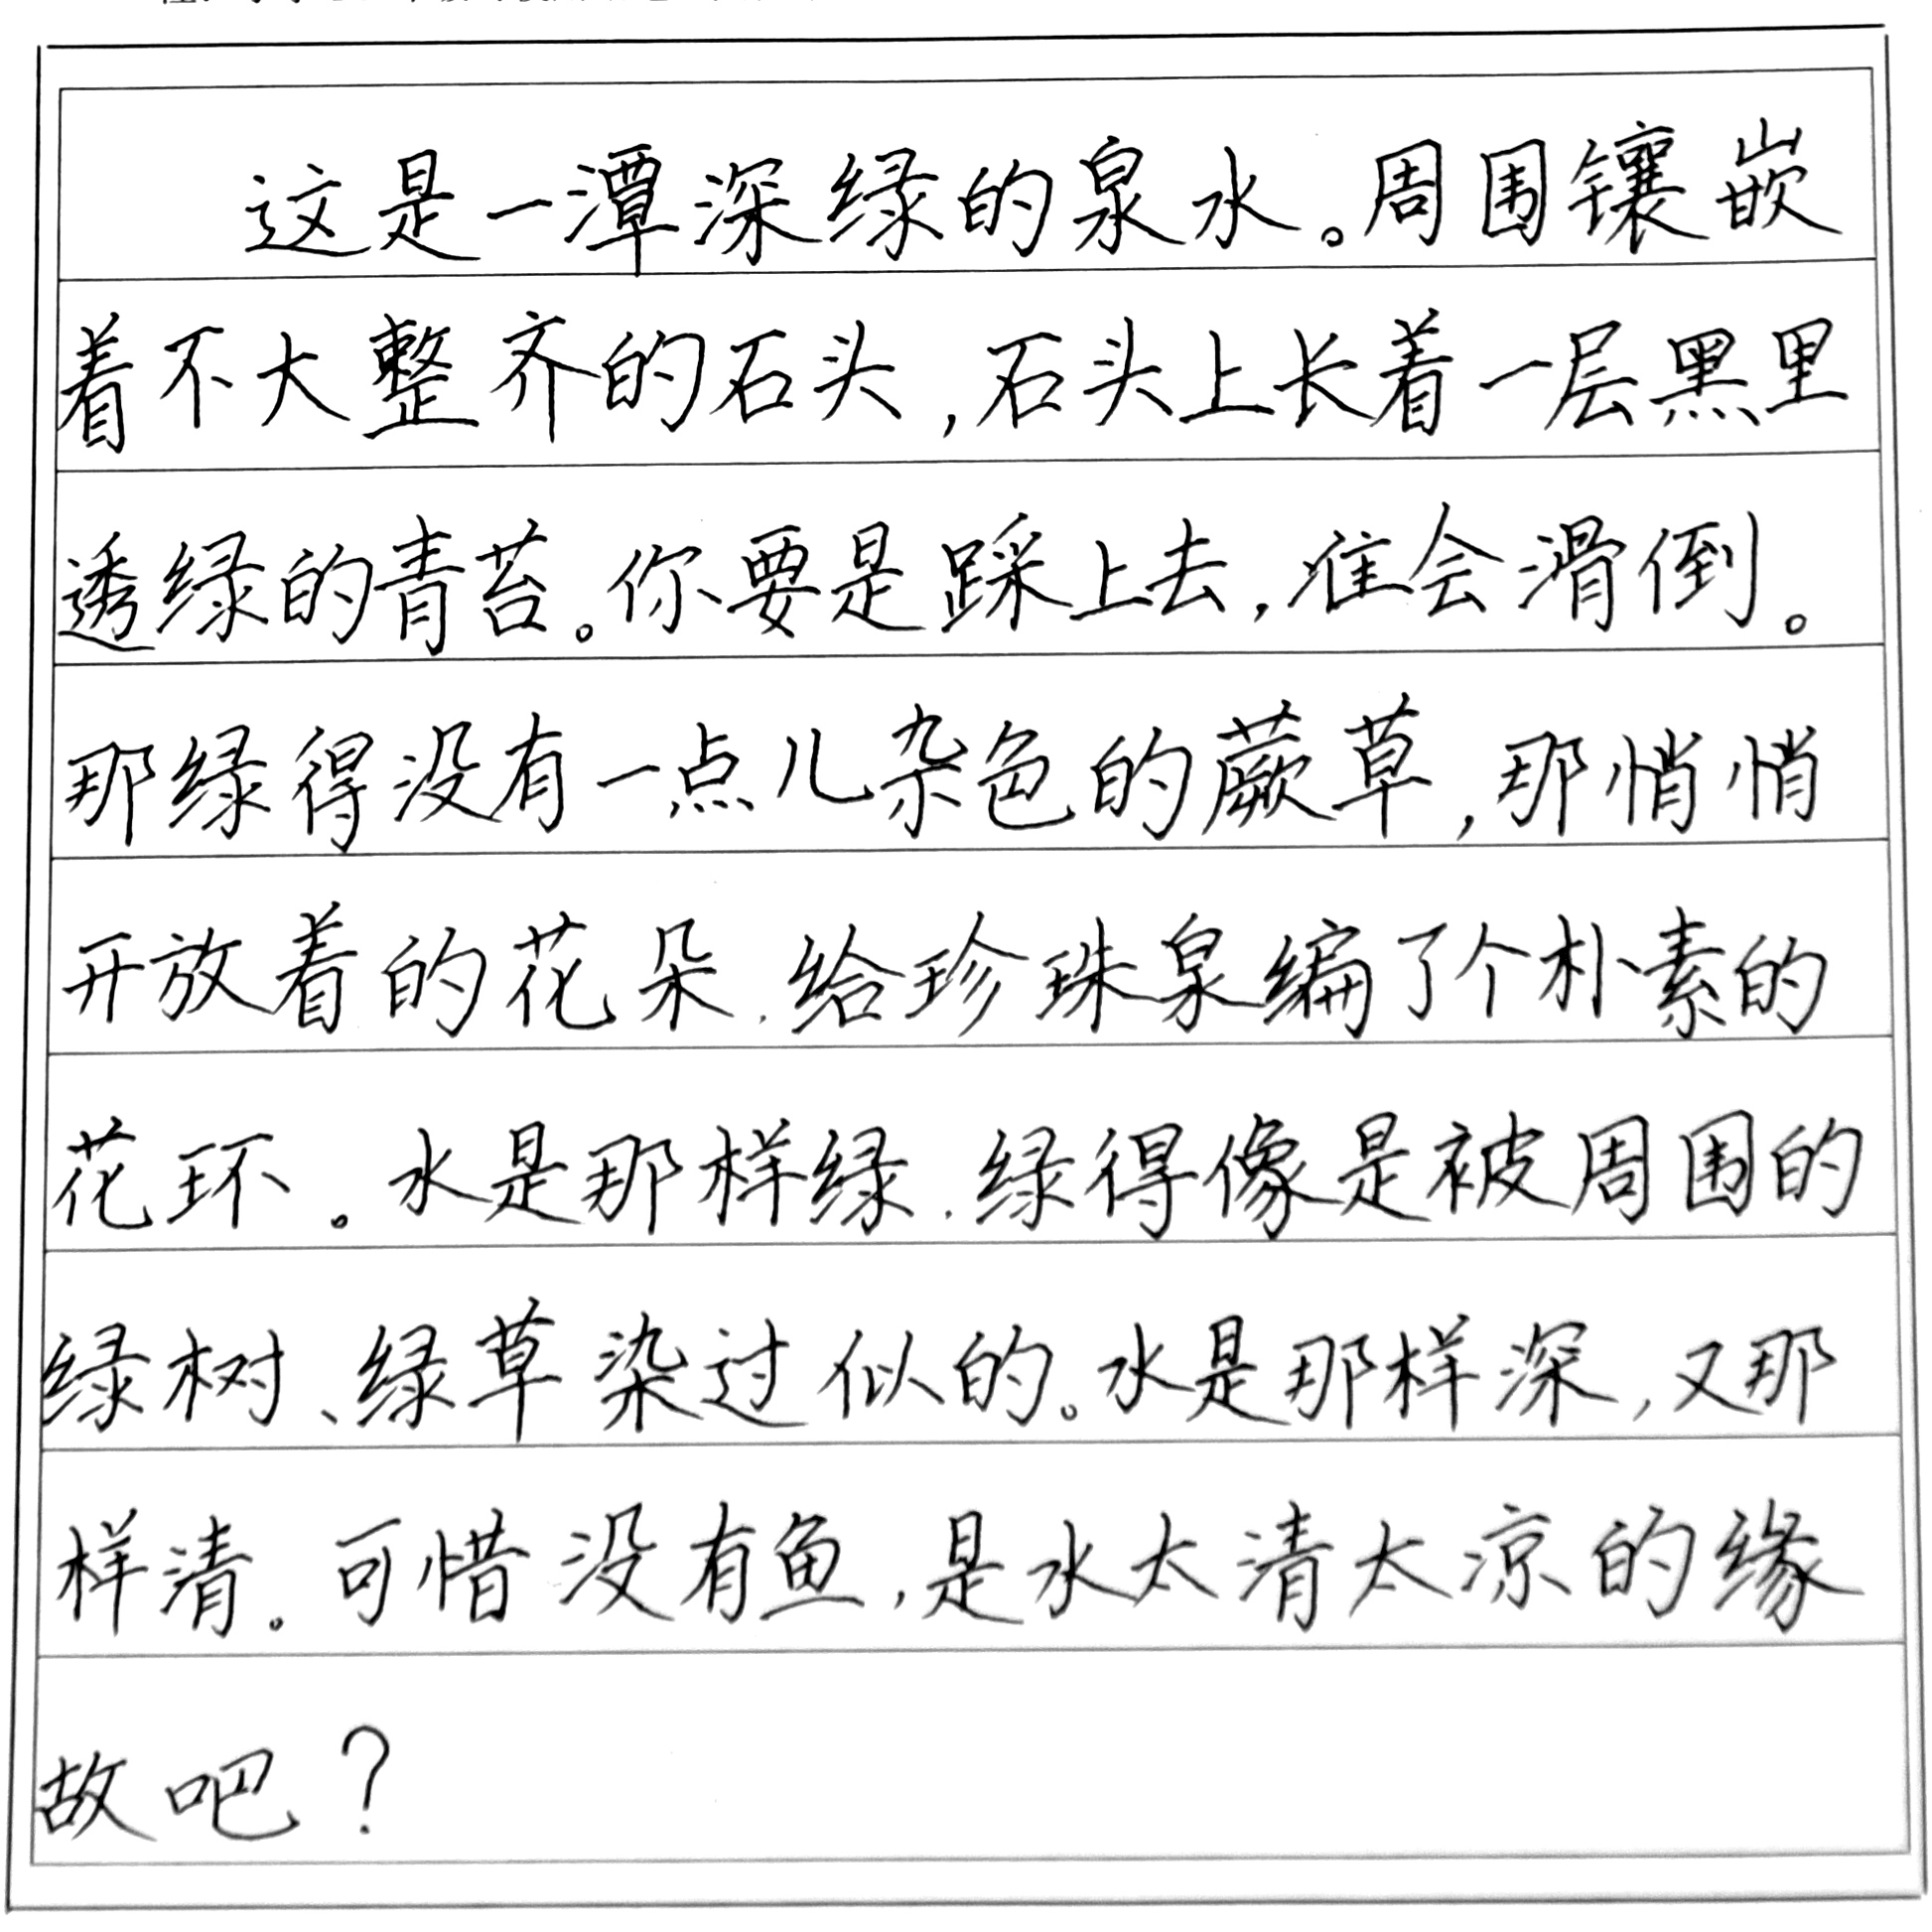 这是一潭深绿的泉水。周围镶嵌
着不大整齐的石头,石头上长着一层黑里
透绿的青苔。你要是踩上去,准会滑倒。
那绿得没有一点儿杂色的蕨草,那悄悄
开放着的花朵,给珍珠泉编了个朴素的
花环。水是那样绿,绿得像是被周围的
绿树、绿草染过似的。水是那样深,又那
样清。可惜没有鱼,是水太清太凉的缘
故吧?